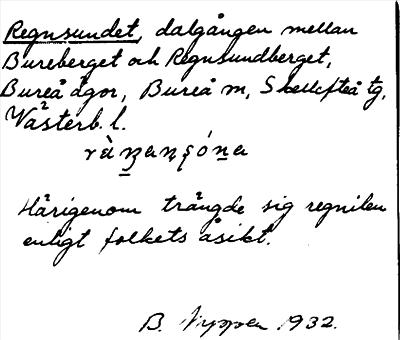 Regnsundet, dalgången mellan
Bureberget och Regnsundberget,
Bureå ägor, Bureå sn, Skellefteå tg,
Västerb. l.
Härigenom trängde sig regnilen
enligt folkets åsikt.
B. 1932.